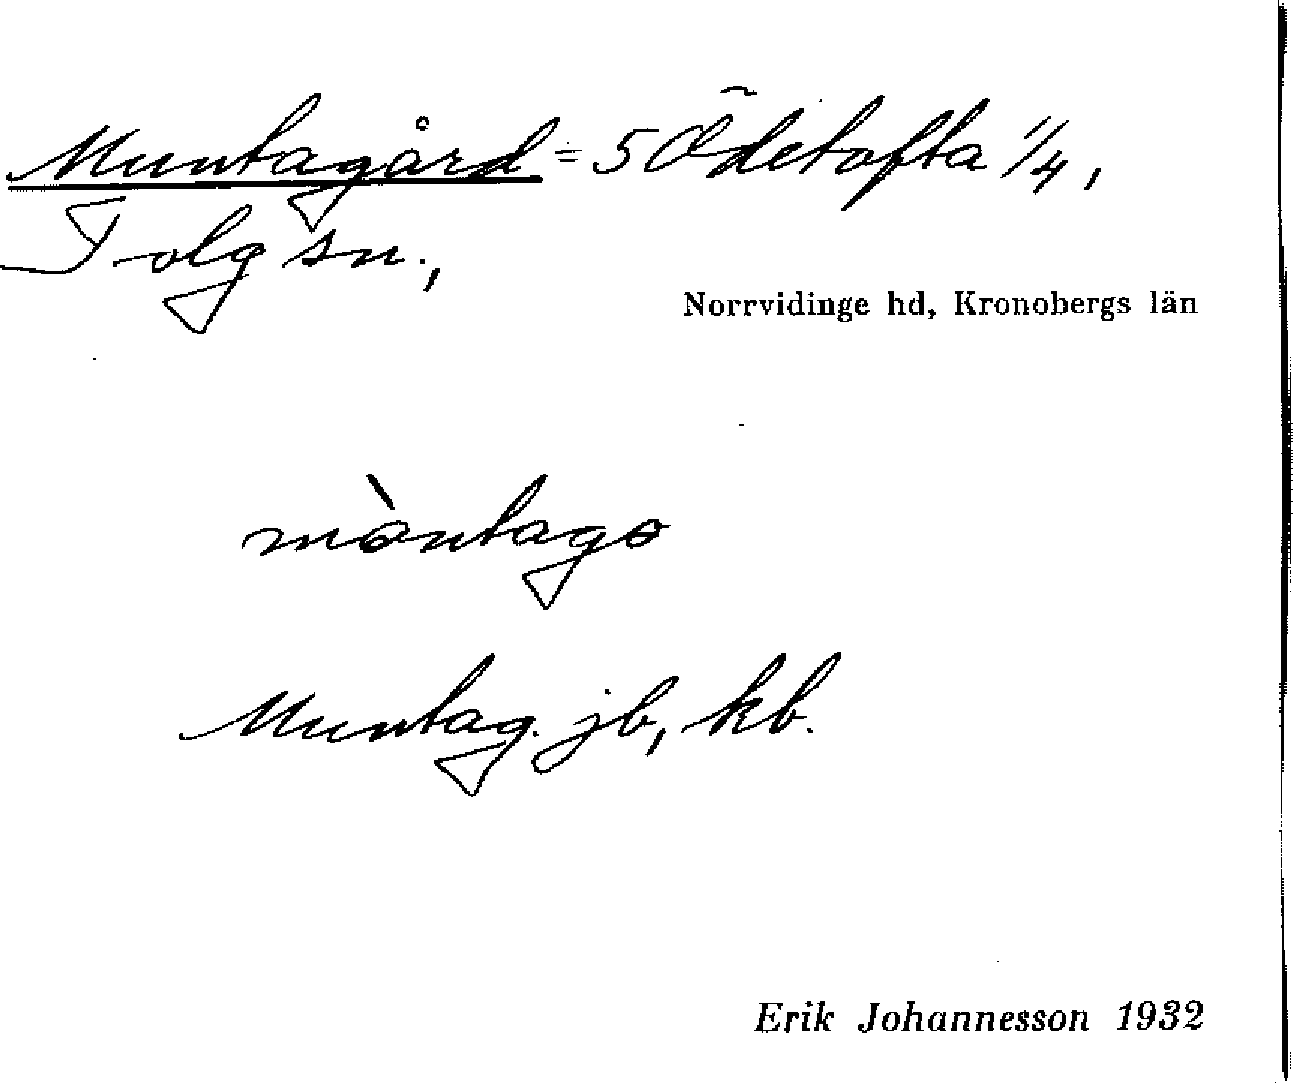 Muntagård = 5 Ödetofta 1/4,
Tolg sn.,
Norrvidinge hd, Kronobergs län
mòntago
Muntag. jb, kb.
Erik Johannesson 1932